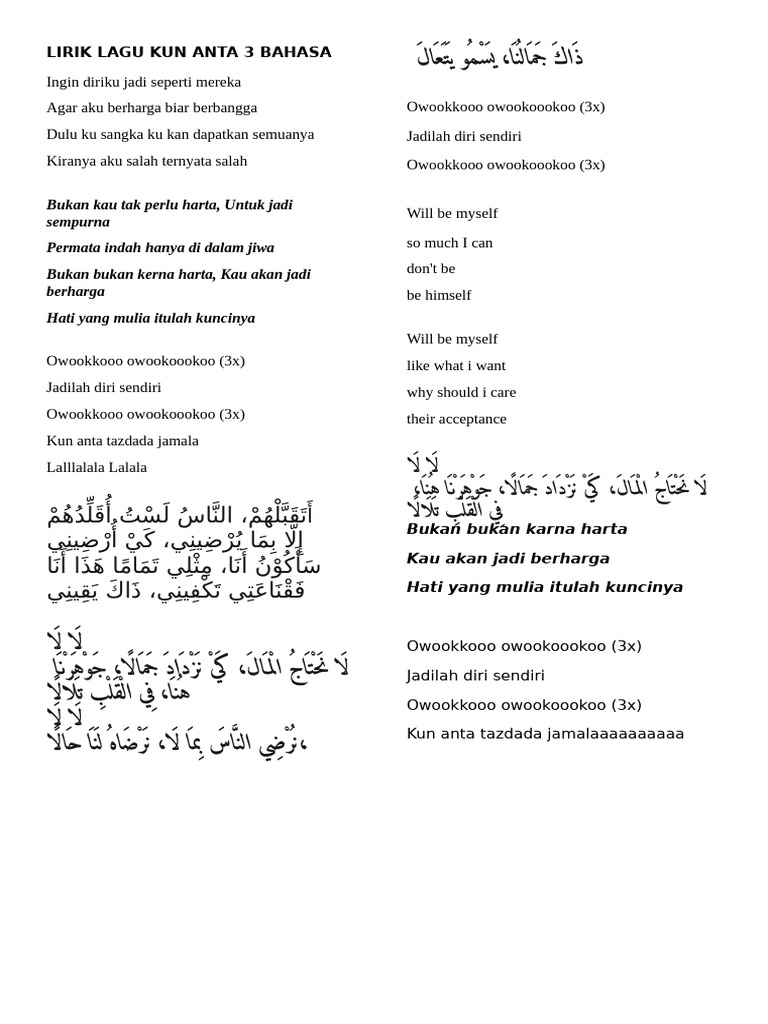 LIRIK LAGU KUN ANTA 3 BAHASA
Ingin diriku jadi seperti mereka
Agar aku berharga biar berbangga
Dulu ku sangka ku kan dapatkan semuanya
Kiranya aku salah ternyata salah
Bukan kau tak perlu harta, Untuk jadi
sempurna
Permata indah hanya di dalam jiwa
Bukan bukan kerna harta, Kau akan jadi
berharga
Hati yang mulia itulah kuncinya
Owookkooo owookoookoo (3x)
Jadilah diri sendiri
Owookkooo owookoookoo (3x)
Kun anta tazdada jamala
Lalllalala Lalala
أَتَقَبَّلْهُمْ، النَّاسُ لَسْتُ أُقَلِّدُهُمْ
إِلَّا بِمَا يُرْضِينِي، كَيْ أُرْضِينِي
سَأَكُوْنُ أَنَا، مِثْلِي تَمَامًا هَذَا أَنَا
فَقْنَاعَتِي تَكْفِينِي، ذَاكَ يَقِينِي
لَا لَا
لَا نَحْتَاجُ الْمَالَ، كَيْ نَزْدَادَ جَمَالًا، جَوْهَرْنَا
هُنَا، فِي الْقَلْبِ تَلَالَا
لَا لَا
نُرْضِي النَّاسَ بِمَا لَا، نَرْضَاهُ لَنَا حَالًا،
ذَاكَ جَمَالُنَا، يَسْمُو يَتَعَالَ
Owookkooo owookoookoo (3x)
Jadilah diri sendiri
Owookkooo owookoookoo (3x)
Will be myself
so much I can
don't be
be himself
Will be myself
like what i want
why should i care
their acceptance
لَا لَا
لَا نَحْتَاجُ الْمَالَ، كَيْ نَزْدَادَ جَمَالًا، جَوْهَرْنَا هُنَاءَ
فِي الْقَلْبِ تَلَالَا
Bukan bukan karna harta
Kau akan jadi berharga
Hati yang mulia itulah kuncinya
Owookkooo owookoookoo (3x)
Jadilah diri sendiri
Owookkooo owookoookoo (3x)
Kun anta tazdada jamalaaaaaaaaaa